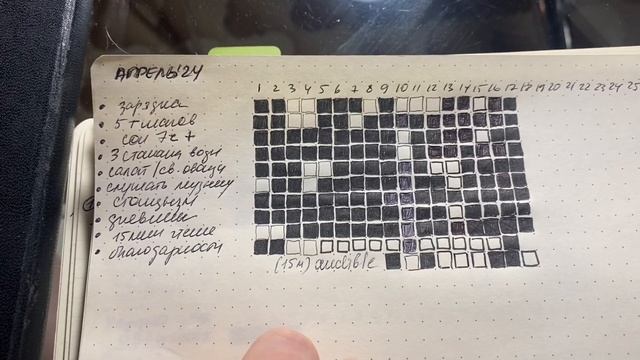 АПРЕЛЬ'24
1 2 3 4 5 6 7 8 9 10 11 12 13 14 15 16 17 18 19 20 21 22 23 24 25
зарядка
5 т шагов
сон 7ч +
3 стакана воды
салат/св. овощи
слушать музыку
стоицизм
дневник
15 мин чтение
благодарность
(15м) audible